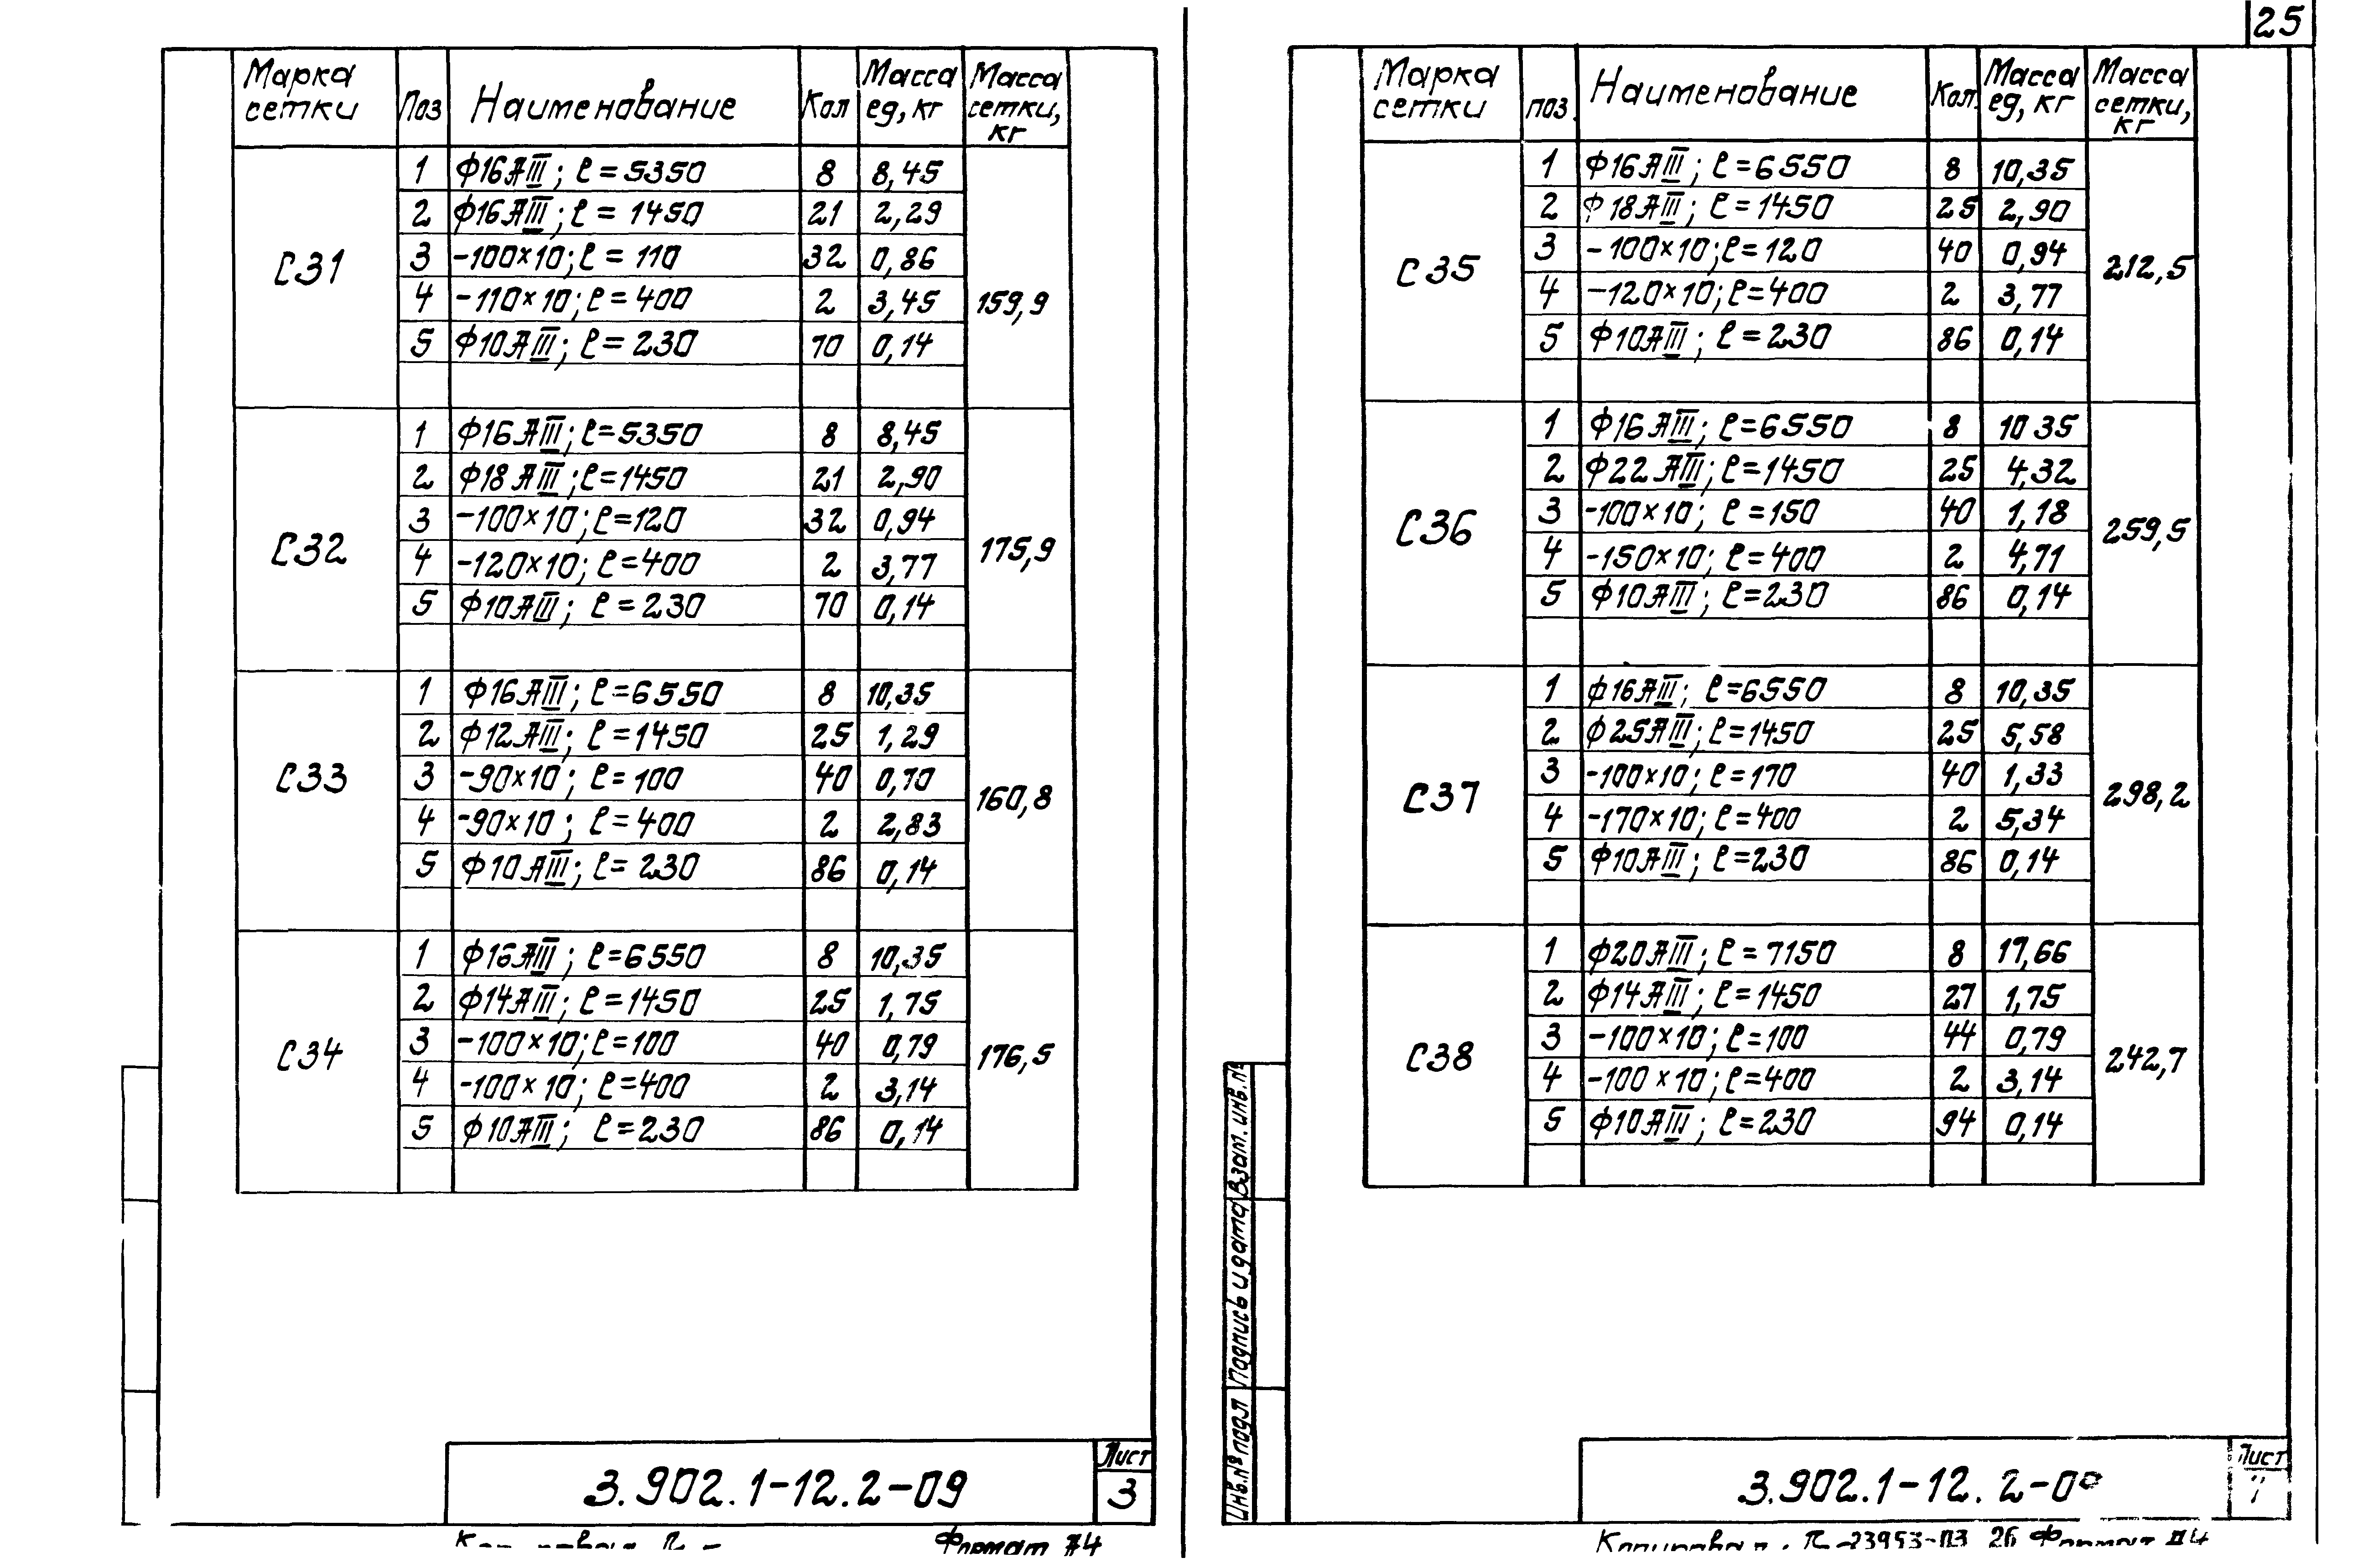 25
Марка сетки Поз Наименование Кол Масса ед, кг Масса сетки, кг
С31 159,9
1 ф16АIII; ℓ=5350 8 8,45
2 ф16АIII; ℓ=1450 21 2,29
3 -100×10; ℓ=110 32 0,86
4 -110×10; ℓ=400 2 3,45
5 ф10АIII; ℓ=230 70 0,14
С32 175,9
1 ф16АIII; ℓ=5350 8 8,45
2 ф18АIII; ℓ=1450 21 2,90
3 -100×10; ℓ=120 32 0,94
4 -120×10; ℓ=400 2 3,77
5 ф10АIII; ℓ=230 70 0,14
С33 160,8
1 ф16АIII; ℓ=6550 8 10,35
2 ф12АIII; ℓ=1450 25 1,29
3 -90×10; ℓ=100 40 0,70
4 -90×10; ℓ=400 2 2,83
5 ф10АIII; ℓ=230 86 0,14
С34 176,5
1 ф16АIII; ℓ=6550 8 10,35
2 ф14АIII; ℓ=1450 25 1,75
3 -100×10; ℓ=100 40 0,79
4 -100×10; ℓ=400 2 3,14
5 ф10АIII; ℓ=230 86 0,14
3.902.1-12.2-09
Лист
3
Формат А4
Марка сетки поз. Наименование Кол. Масса ед, кг Масса сетки, кг
С35 212,5
1 ф16АIII; ℓ=6550 8 10,35
2 ф18АIII; ℓ=1450 25 2,90
3 -100×10; ℓ=120 40 0,94
4 -120×10; ℓ=400 2 3,77
5 ф10АIII; ℓ=230 86 0,14
С36 259,5
1 ф16АIII; ℓ=6550 8 10 35
2 ф22АIII; ℓ=1450 25 4,32
3 -100×10; ℓ=150 40 1,18
4 -150×10; ℓ=400 2 4,71
5 ф10АIII; ℓ=230 86 0,14
С37 298,2
1 ф16АIII; ℓ=6550 8 10,35
2 ф25АIII; ℓ=1450 25 5,58
3 -100×10; ℓ=170 40 1,33
4 -170×10; ℓ=400 2 5,34
5 ф10АIII; ℓ=230 86 0,14
С38 242,7
1 ф20АIII; ℓ=7150 8 17,66
2 ф14АIII; ℓ=1450 27 1,75
3 -100×10; ℓ=100 44 0,79
4 -100×10; ℓ=400 2 3,14
5 ф10АIII; ℓ=230 94 0,14
Взам. инв. №
Подпись и дата
Инв. № подл
3.902.1-12.2-09
Лист
23953-03 26 Формат А4